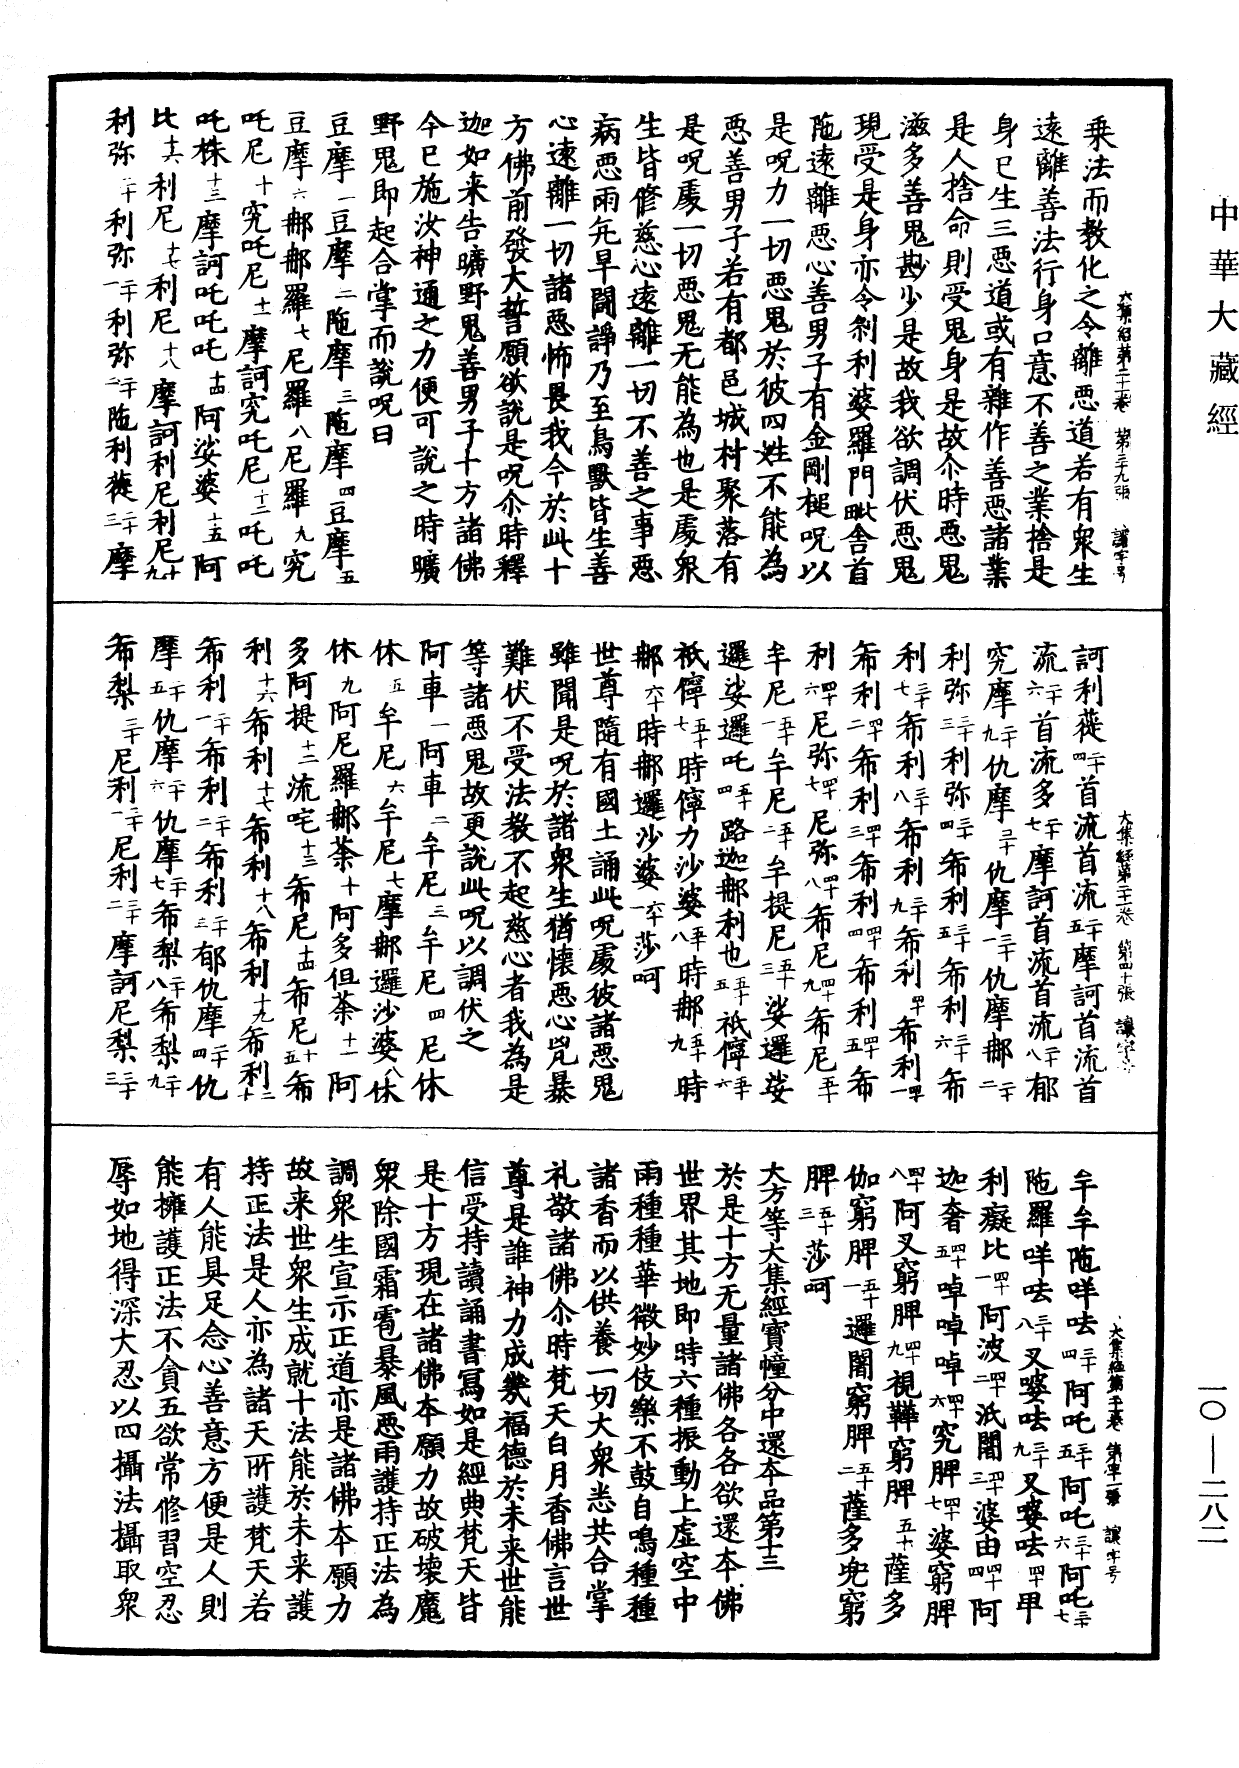 中華大藏經
一〇—二八二
大集經第二十一卷 第三十九張 讓字号
乘法而教化之令離惡道若有衆生
遠離善法行身口意不善之業捨是
身已生三惡道或有雜作善惡諸業
是人捨命則受鬼身是故尒時惡鬼
滋多善鬼尠少是故我欲調伏惡鬼
現受是身亦令刹利婆羅門毗舍首
陁遠離惡心善男子有金剛槌呪以
是呪力一切惡鬼於彼四姓不能為
惡善男子若有都邑城村聚落有
是呪處一切惡鬼无能為也是處衆
生皆修慈心遠離一切不善之事惡
病惡雨亢旱鬪諍乃至鳥獸皆生善
心遠離一切諸惡怖畏我今於此十
方佛前發大誓願欲說是呪尒時釋
迦如来告曠野鬼善男子十方諸佛
今已施汝神通之力便可說之時曠
野鬼即起合掌而說呪曰
豆摩一豆摩二陁摩三陁摩四豆摩五
豆摩六郍郍羅七尼羅八尼羅九究
吒尼十究吒尼十一摩訶究吒尼十二吒吒
吒株十三摩訶吒吒吒十四阿娑婆十五阿
比十六利尼十七利尼十八摩訶利尼利尼十九
利弥二十利弥二十一利弥二十二陁利蕤二十三摩
大集經第二十一卷 第四十張 讓字号
訶利蕤二十四首流首流二十五摩訶首流首
流二十六首流多二十七摩訶首流首流二十八郁
究摩二十九仇摩三十仇摩三十一仇摩郍三十二
利弥三十三利弥三十四希利三十五希利三十六希
利三十七希利三十八希利三十九希利四十希利四十一
希利四十二希利四十三希利四十四希利四十五希
利四十六尼弥四十七尼弥四十八希尼四十九希尼五十
牟尼五十一牟尼五十二牟提尼五十三娑邏娑
邏娑邏吒五十四路迦郍利也五十五祇儜五十六
祇儜五十七時儜力沙婆五十八時郍五十九時
郍六十時郍邏沙婆六十一莎呵
世尊隨有國土誦此呪處彼諸惡鬼
雖聞是呪於諸衆生猶懷惡心㐫暴
難伏不受法教不起慈心者我為是
等諸惡鬼故更說此呪以調伏之
阿車一阿車二牟尼三牟尼四尼休
休五牟尼六牟尼七摩郍邏沙婆八休
休九阿尼羅郍荼十阿多但荼十一阿
多阿提十二流咤十三希尼十四希尼十五希
利十六希利十七希利十八希利十九希利二十
希利二十一希利二十二希利二十三郁仇摩二十四仇
摩二十五仇摩二十六仇摩二十七希梨二十八希梨二十九
希梨三十尼利三十一尼利三十二摩訶尼梨三十三
大集經第二十一卷 第四十一張 讓字号
牟牟陁咩呿三十四阿吒三十五阿吒三十六阿吒三十七
陁羅咩呿三十八叉婆呿三十九叉婆呿四十甲
利癡比四十一阿波四十二泜闇四十三婆由四十四阿
迦奢四十五啅啅啅四十六究脾四十七婆窮脾
四十八阿叉窮脾四十九視鞞窮脾五十薩多
伽窮脾五十一邏闍窮脾五十二薩多㘽窮
脾五十三莎呵
大方等大集經寳幢分中還本品第十三
於是十方无量諸佛各各欲還本佛
世界其地即時六種振動上虛空中
雨種種華微妙伎樂不鼓自鳴種種
諸香而以供養一切大衆悉共合掌
礼敬諸佛尒時梵天白月香佛言世
尊是誰神力成幾福德於未来世能
信受持讀誦書寫如是經典梵天皆
是十方現在諸佛本願力故破壞魔
衆除國霜雹暴風惡雨護持正法為
調衆生宣示正道亦是諸佛本願力
故来世衆生成就十法能於未来護
持正法是人亦為諸天所護梵天若
有人能具足念心善意方便是人則
能擁護正法不貪五欲常修習空忍
辱如地得深大忍以四攝法攝取衆